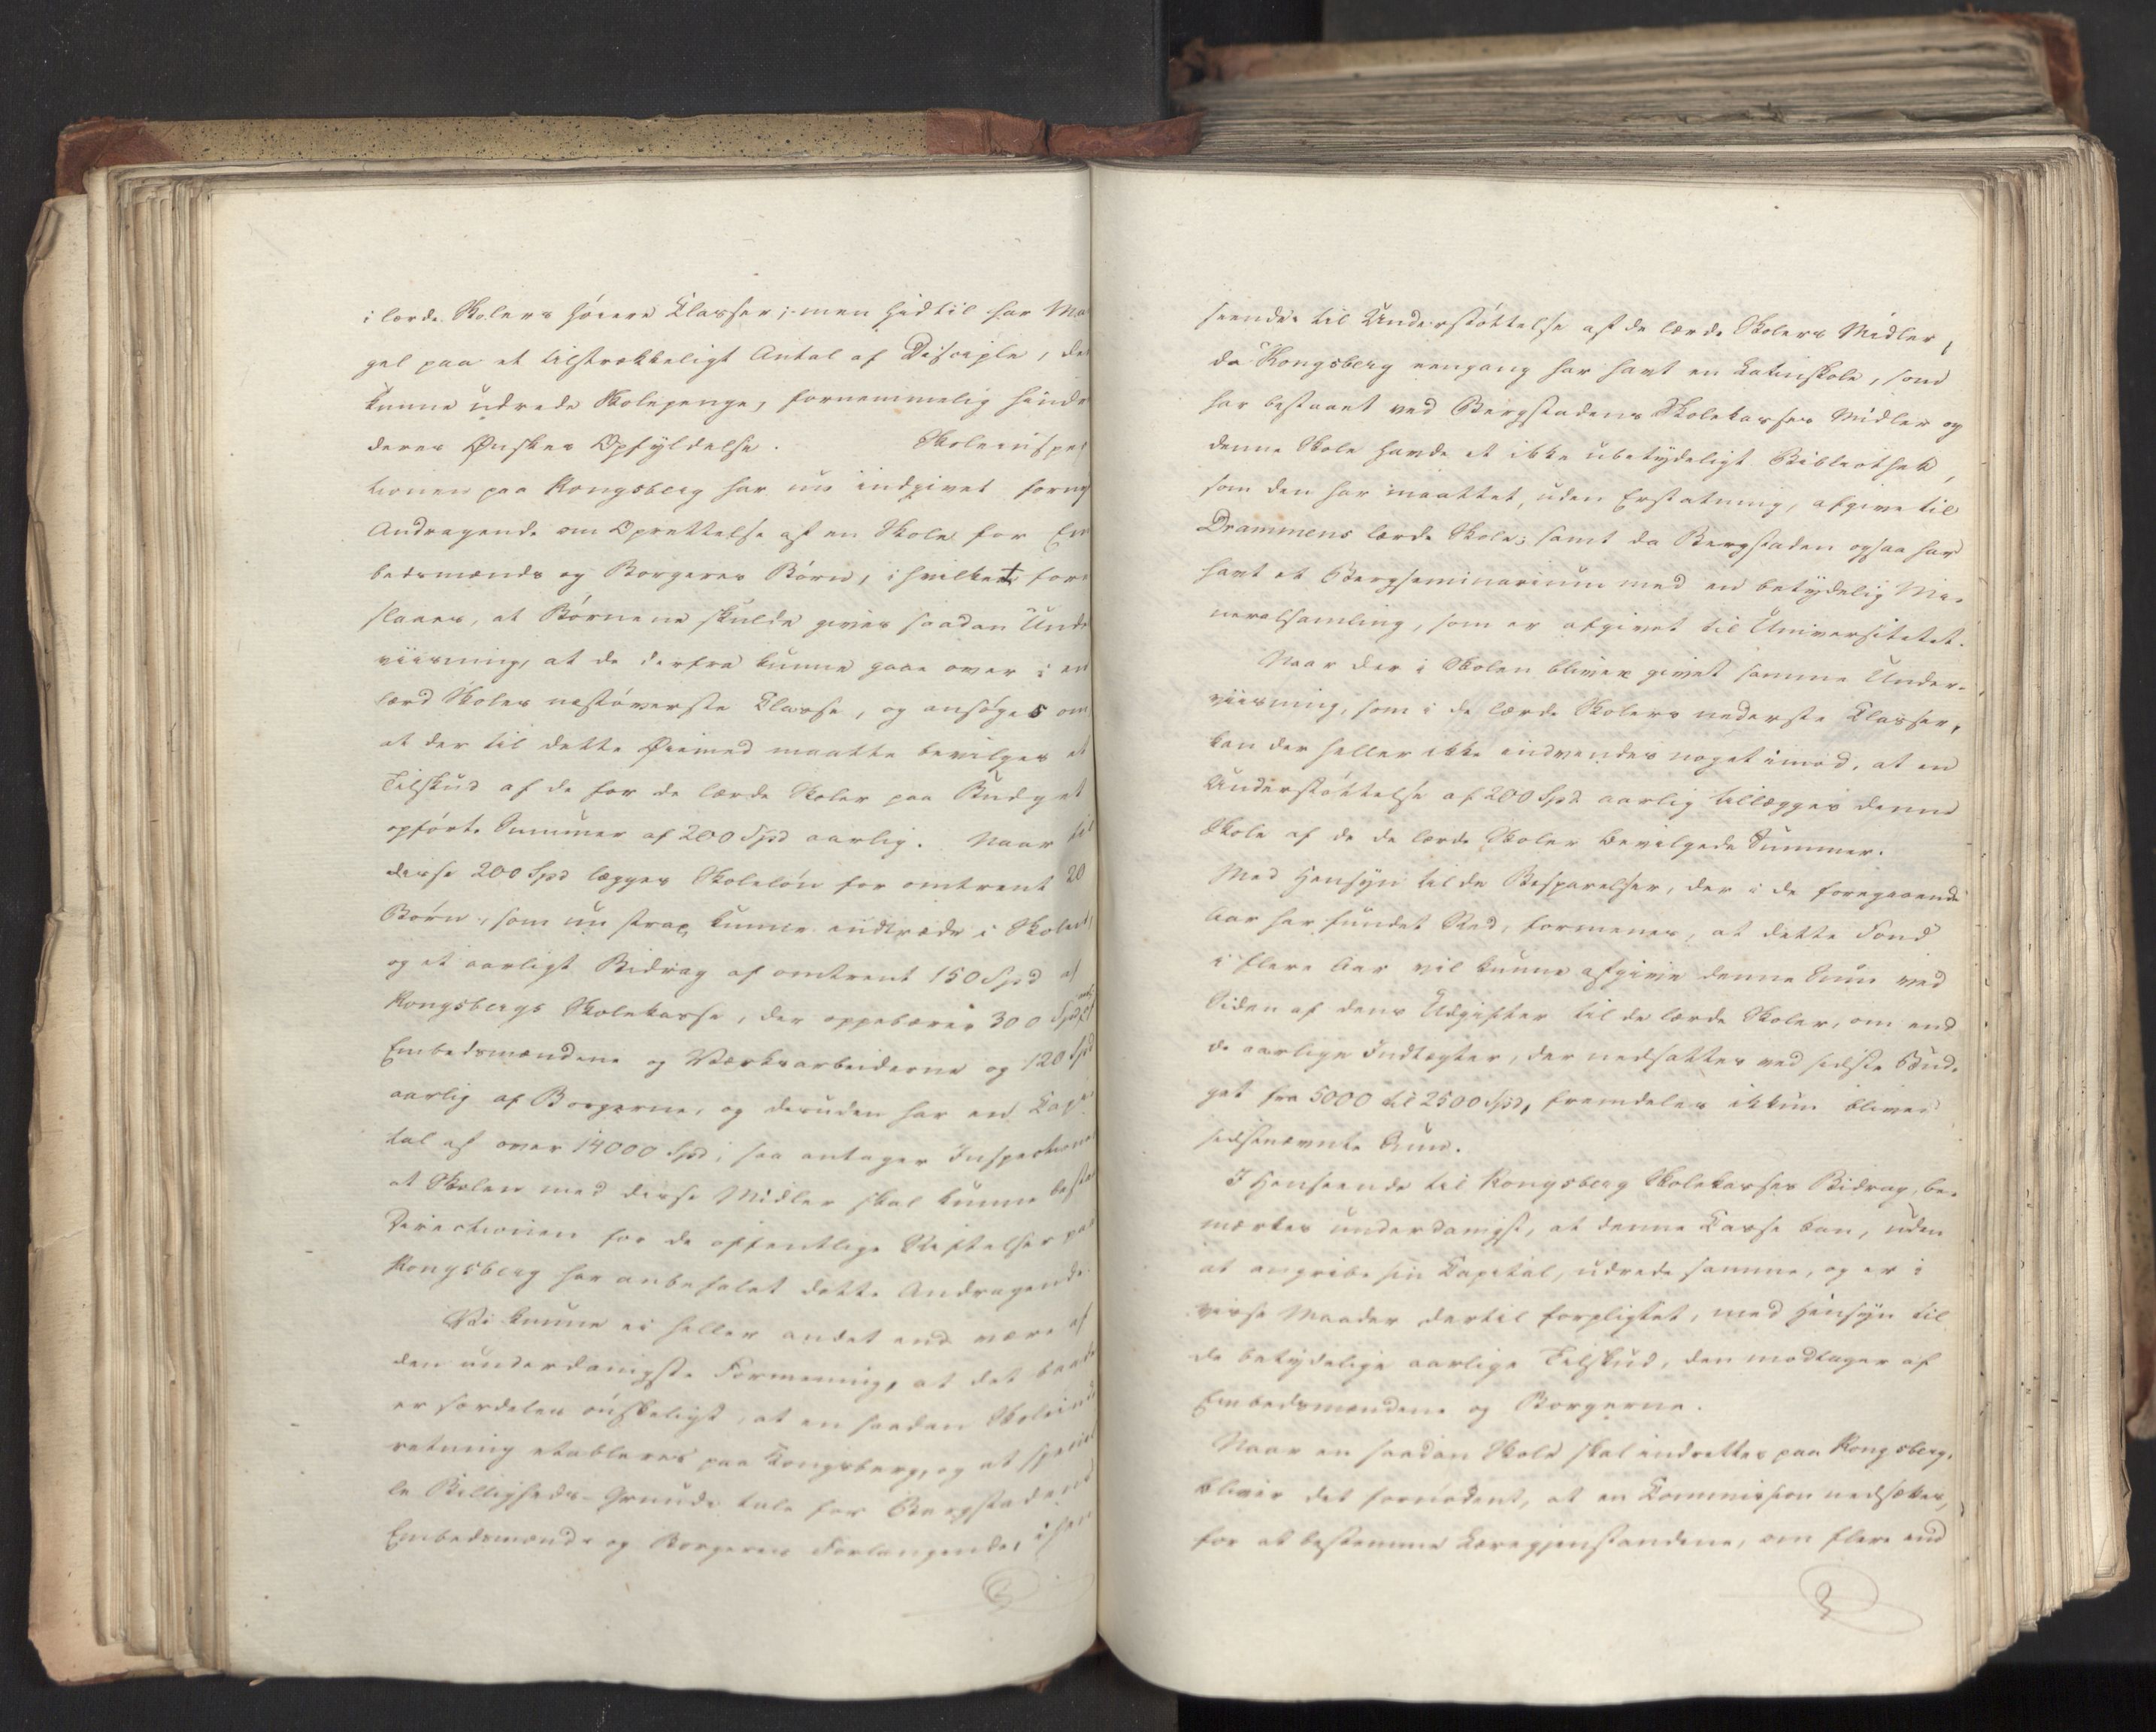 i lærde Skolers høiere Classer; men hidtil har Ma
gel paa et tilstrækkeligt Antal af Disciple, der
kunne udrede Skolepenge, fornemmelig hindr
deres Ønskes Opfyldelse. Skoleinspec
tionen paa Kongsberg har nu indgivet forny
Andragende om Oprettelse af en Skole for Em
bedsmænds og Borgeres Børn, i hvilket fore
slaaes, at Børnene skulde gives saadan Unde
viisning, at de derfra kunne gaae over i en
lærd Skoles næstøverste Classe, og ansøges om
at der til dette Øiemed maatte bevilges et
Tilskud af de for de lærde Skoler paa Budget
opførte Summer af 200 Spd aarlig. Naar til
disse 200 Spd lægges Skoleløn for omtrent 20
Børn, som nu strax kunne indtræde i Skolen,
og et aarligt Bidrag af omtrent 150 Spd af
Kongsbergs Skolekasse, der oppebærer 300 Spd af
Embedsmændene og Værksarbeiderne og 120 Spd
aarlig af Borgerne, og desuden har en Capi
tal af over 14000 Spd, saa antager Inspectionen
at Skolen med disse Midler skal kunne bestaa
Directionen for de offentlige Stiftelser paa
Kongsberg har anbefalet dette Andragende.
Vi kunne ei heller andet end være af
den underdanigste Formening, at det baade
er særdeles ønskeligt, at en saadan Skoleind
retning etableres paa Kongsberg, og at speciel
le Billigheds-Grunde tale for Bergstadens
Embedsmænds og Borgeres Forlangende, i Hen
seende til Understøttelse af de lærde Skolers Midler,
da Kongsberg eengang har havt en Latinskole, som
har bestaaet ved Bergstadens Skolekasses Midler og
denne Skole havde et ikke ubetydeligt Bibliothek,
som den har maattet, uden Erstatning, afgive til
Drammens lærde Skole; samt da Bergstaden ogsaa har
havt et Bergseminarium med en betydelig Mi-
neralsamling, som er afgivet til Universitetet.
Naar der i Skolen bliver givet samme Under-
viisning, som i de lærde Skolers nederste Classer,
kan der heller ikke indvendes noget imod, at en
Understøttelse af 200 Spd aarlig tillægges denne
Skole af de de lærde Skoler bevilgede Summer.
Med Hensyn til de Besparelser, der i de foregaaende
Aar har fundet Sted, formenes, at dette Fond
i flere Aar vil kunne afgive denne Sum ved
Siden af dens Udgifter til de lærde Skoler, om end
de aarlige Indtægter, der nedsattes ved sidste Bud-
get fra 5000 til 2500 Spd, fremdeles ikkun bliver
sidstnævnte Sum.
I Henseende til Kongsberg Skolekasses Bidrag, be-
mærkes underdanigst, at denne Casse kan, uden
at angribe sin Capital, udrede samme, og er i
visse Maader dertil forpligtet, med Hensyn til
de betydelige aarlige Tilskud, den modtager af
Embedsmændene og Borgerne.
Naar en saadan Skole skal indrettes paa Kongsberg,
bliver det fornødent, at en Commission nedsættes,
for at bestemme Læregjenstandene, om flere end